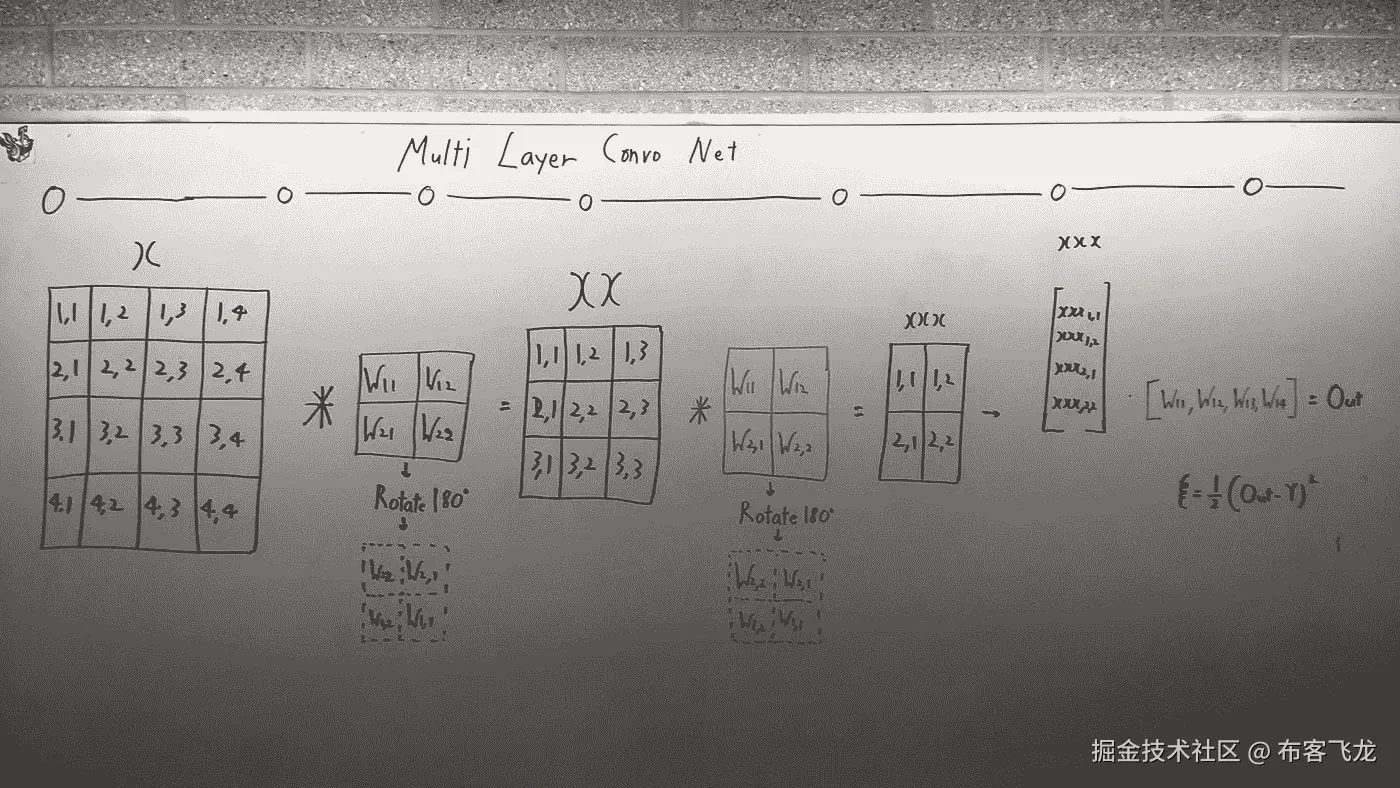 Multi Layer Convo Net
X
1,1 1,2 1,3 1,4
2,1 2,2 2,3 2,4
3,1 3,2 3,3 3,4
4,1 4,2 4,3 4,4
*
W11 W12
W21 W22
Rotate 180°
W22 W2,1
W1,2 W1,1
=
XX
1,1 1,2 1,3
2,1 2,2 2,3
3,1 3,2 3,3
*
W11 W12
W2,1 W2,2
Rotate 180°
W2,2 W2,1
W1,2 W1,1
=
XXX
1,1 1,2
2,1 2,2
→
XXX
XXX1,1
XXX1,2
XXX2,1
XXX2,2
· [W11, W12, W13, W14] = Out
ξ = 1/2 (Out - Y)²
掘金技术社区 @ 布客飞龙